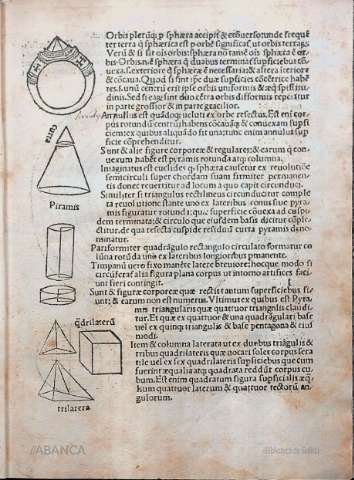 Orbis plerũq; p sphæra accipit & cõuerso: unde freqüẽ
ter terra q̃ sphærica est p orbẽ significaĩ, ut orbis terraꝝ.
Verũ & si sit oĩs orbis sphæra nõ tamẽ oĩs sphæra ẽ or-
bis. Orbis.n. ẽ sphæra q̃ duabus termĩat supficiebus cõ-
uexa.s. exteriore q̃ sphæræ ẽ necessaria: & altera iteriore
& cõcaua. Quod si sint ipsæ duæ supficies cõcẽtricæ habẽt
i. unũ centrũ erit ipse orbis uniformis & æq̃ spissitu-
dinis. Sed
in parte grossior & in parte gracilior.
Annullus est quædoq; uelut ex orbe resectus. Est enĩ cor-
pus rotundũ centrũ habens cõcauaq; & conuexam supfi-
ciem: ex quibus aliquãdo fit una: tunc enim annulus sup
ficie cõprehenditur.
Sunt & aliæ figuræ corporeæ & regulares: & earum q̃ con
uexum habẽt est pyramis rotunda atq; columna.
Imaginatus est euclides q̃ sphæra causetur ex reuolutiõe
semicirculi super chordam suam firmiter permanen-
tis donec reuertitur ad locum a quo cæpit circunduci.
Similiter si triangulus rectilineus circunducitur comple
ta reuolutione: stante uno ex lateribus: conus siue pyra
mis figuratur rotundi: q; superficie cõuexa ad cuspi-
dem terminata: & circulo que eiusdem basis dicitur cõple-
ctitur. de qua resecta cuspide residuũ curta pyramis deno
minatur.
Pariformiter quadrangulo rectangulo circulato formatur co
lũna rotũda uno ex lateribus longioribus pmanente.
Timpanũ uero fixo manẽte latere breuiore: hocque modo si
circũferat alia figura plana corpus ut intorno artifices faci
unt fieri contingit.
Sunt & figuræ corporeæ quæ recti tantum superficiebus fi-
unt; & earum non est numerus. Vltimus ex quibus est Pyra
mis triangularis quæ quattuor triangulis claudi
tur. Est quæ ex quattuor & una quadrãgulari base
uel ex quinq; triangulis & base pentagona & eius
modi.
Item & columna laterata ut ex duobus triãgulis &
tribus quadrilateris quæ uocari solet corpus sera
tile uel ex sex quadrilateris supficiebus quæ cum
fuerint æqualia atq; quadrata reddũt corpus cu-
bum. Est enim quadratum figura supficialis æq̃-
lium quattuor laterum & quattuor rectorũ an-
gulorum.
conus
Piramis
q̃drilaterũ
trilatera
//ABANCA